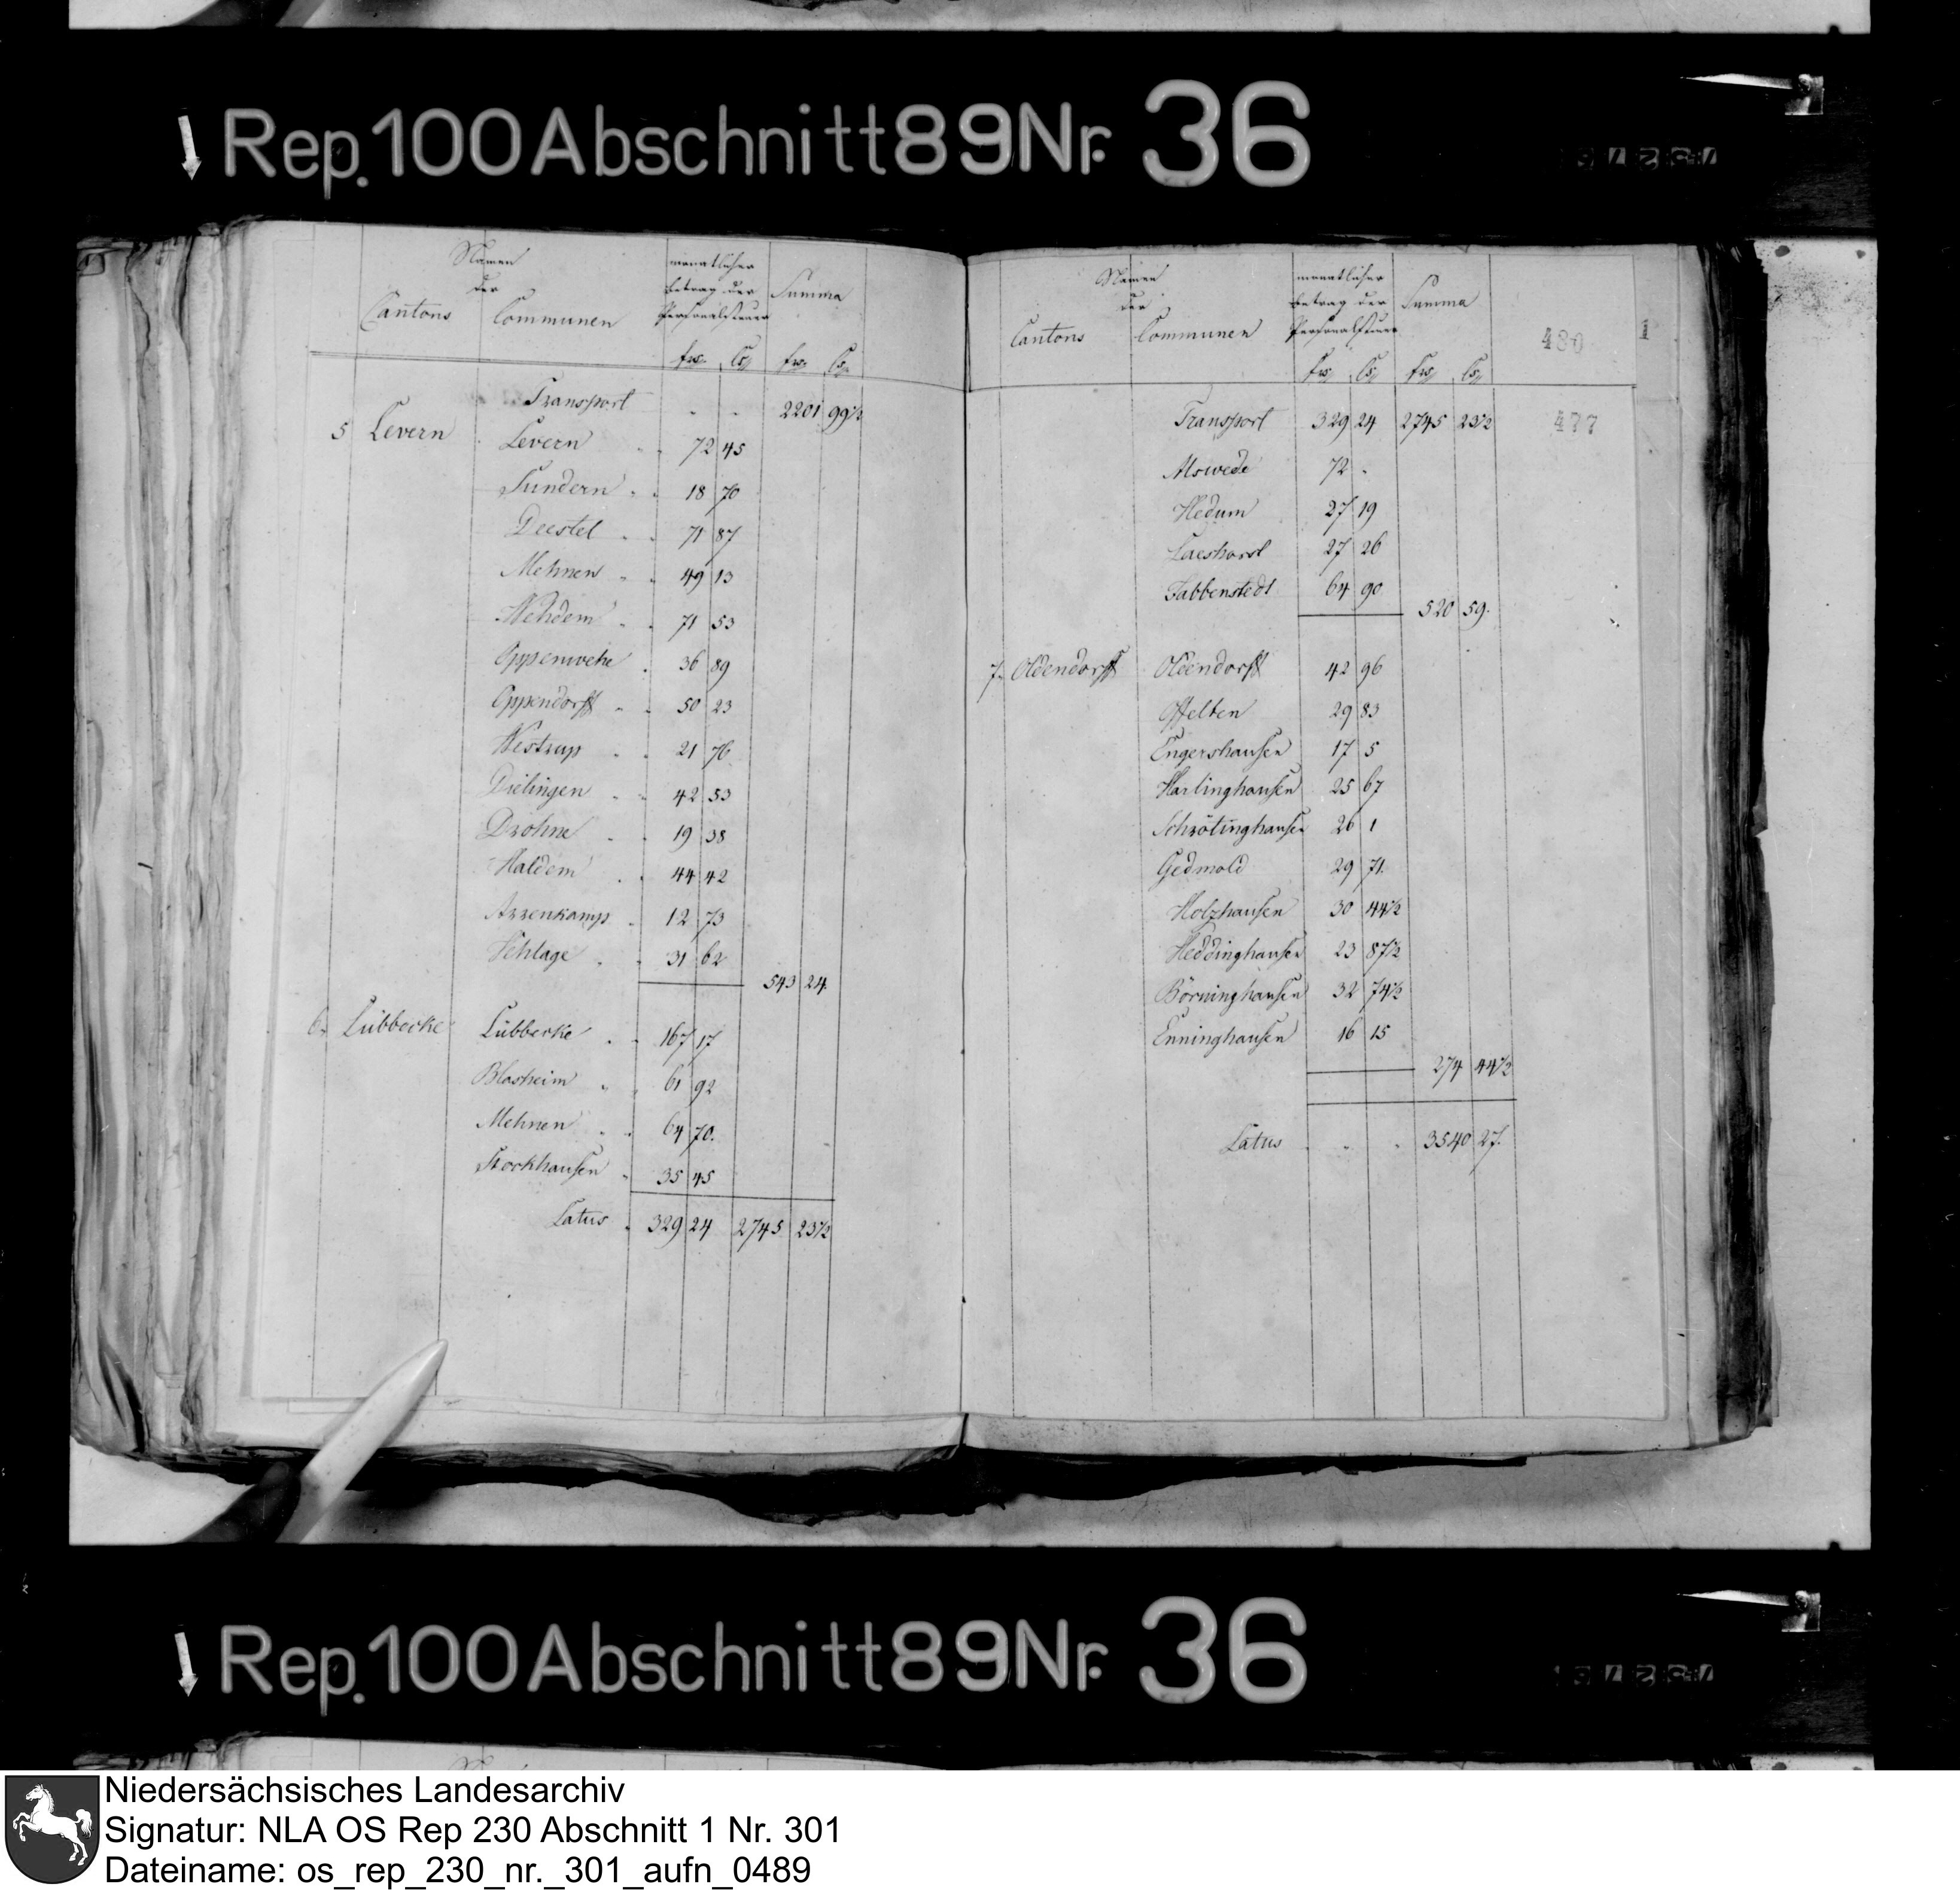 Rep. 100 Abschnitt 89 Nr. 36
Namen
der
Cantons Communen
monatlicher
Betrag der
Personalsteuer
Summa
frs. Cs. frs. Cs.
Transport - - 2201 99½
5 Levern Levern 72 45
Sundern 18 70
Deestel 71 87
Mehnen 49 13
Wehdem 71 53
Oppenwehe 36 89
Oppendorff 50 23
Westrup 21 76
Dielingen 42 53
Drohne 19 38
Haldem 44 42
Arrenkamp 12 73
Vehlage 31 62
543 24
6. Lübbecke Lübbecke 167 17
Blasheim 61 92
Mehnen 64 70.
Stockhausen 35 45
Latus 329 24 2745 23½
Namen
der
Cantons Communen
monatlicher
Betrag der
Personalsteuer
Summa
frs. Cs. frs. Cs.
480
1
Transport 329 24 2745 23½
477
Alswede 72 -
Hedum 27 19
Laeshorst 27 26
Fabbenstedt 64 90
520 59.
7. Oldendorff Oldendorff 42 96
Offelten 29 83
Engershausen 17 5
Harlinghausen 25 67
Schrötinghausen 26 1
Gedmold 29 71.
Holzhausen 30 44½
Heddinghausen 23 87½
Börninghausen 32 74½
Enninghausen 16 15
274 44½
Latus - - 3540 27.
Rep. 100 Abschnitt 89 Nr. 36
Niedersächsisches Landesarchiv
Signatur: NLA OS Rep 230 Abschnitt 1 Nr. 301
Dateiname: os_rep_230_nr._301_aufn_0489